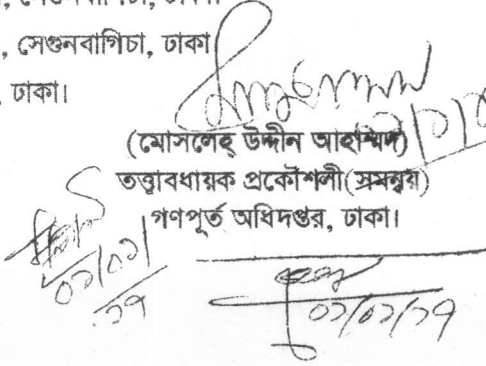 , সেগুনবাগিচা, ঢাকা।
, সেগুনবাগিচা, ঢাকা
, ঢাকা।
(মোসলেহ্ উদ্দীন আহাম্মদ)
তত্ত্বাবধায়ক প্রকৌশলী(সমন্বয়)
গণপূর্ত অধিদপ্তর, ঢাকা।
০১/০১/
১৭
০১/০১/১৭